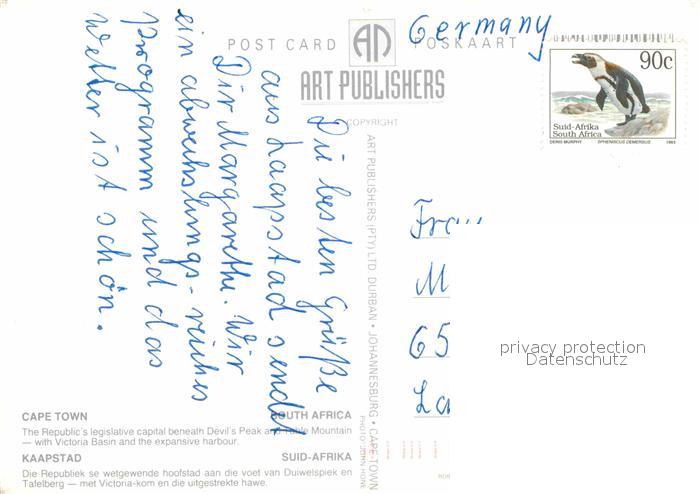 Germany
POST CARD POSKAART
ART PUBLISHERS
COPYRIGHT
90c
Suid-Afrika
South Africa
DENIS MURPHY SPHENISCUS DEMERSUS 1993
Die besten Grüße
aus Kaapstad sendet
Dir Margarethe. Wir
ein abwechslungs-reiches
Programm und das
Wetter ist schön.
ART PUBLISHERS (PTY) LTD DURBAN • JOHANNESBURG • CAPE TOWN
Fra
M
65
La
privacy protection
Datenschutz
CAPE TOWN SOUTH AFRICA
The Republic's legislative capital beneath Devil's Peak and Table Mountain
— with Victoria Basin and the expansive harbour.
KAAPSTAD SUID-AFRIKA
Die Republiek se wetgewende hoofstad aan die voet van Duiwelspiek en
Tafelberg — met Victoria-kom en die uitgestrekte hawe.